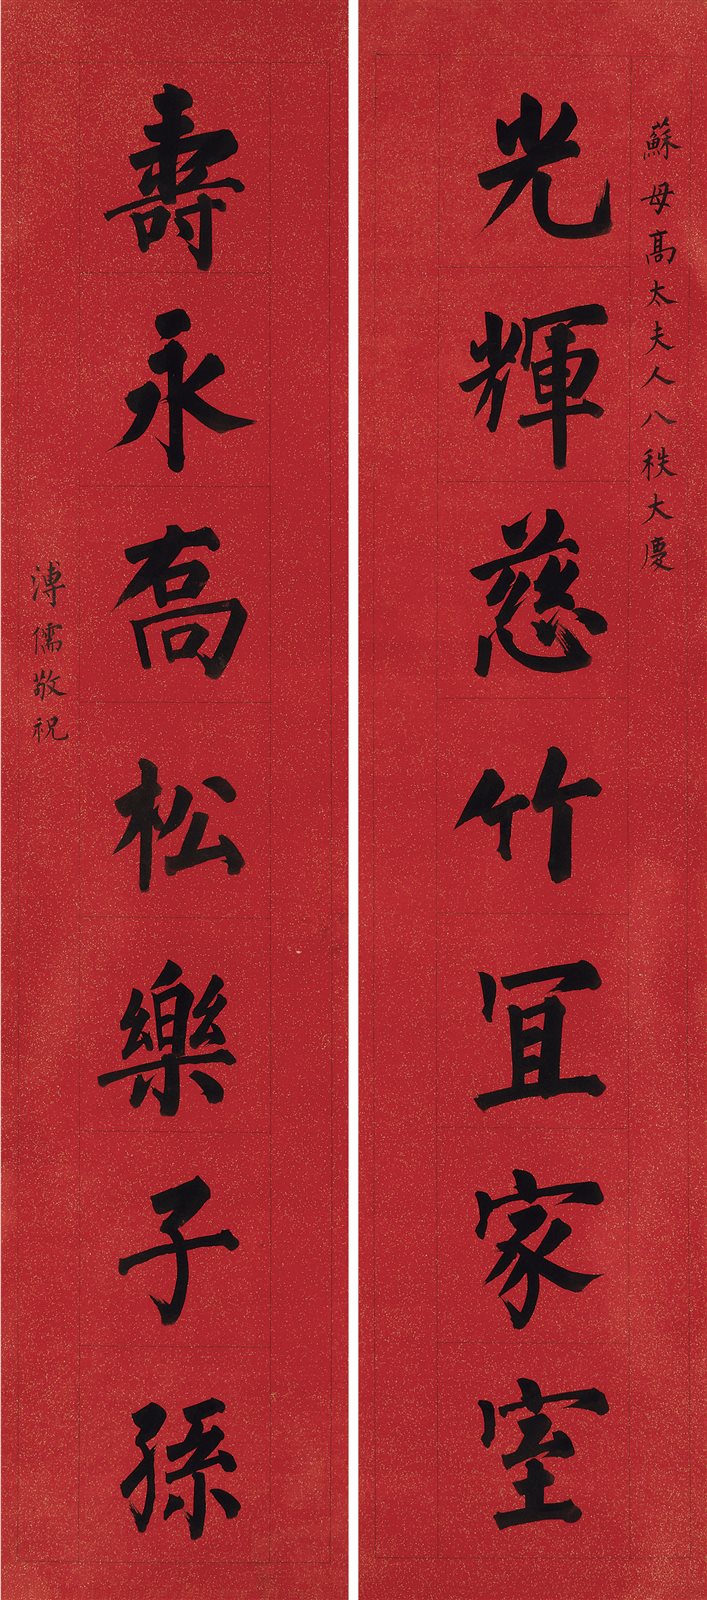 蘇母髙太夫人八秩大慶
光輝慈竹冝家室
壽永喬松樂子孫
溥儒敬祝